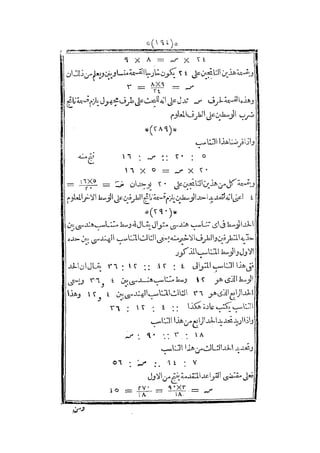 *(١٦٤)*
٢٤ × سـ = ٨ × ٩
وبقسمة هذين الناتجين على ٢٤ يكون خارجا القسمة متساويين ويعلم من ذلك ان
سـ = ٨×٩/٢٤ = ٣
وهذه القسمة لحرف سـ تدل على انه للبحث على طرف مجهول يلزم قسمة ناتج
ضرب الوسطين على الطرف المعلوم
*(٢٨٩)*
واذا فرضنا هذا التناسب
٥ : ٢٠ :: سـ : ١٦ نتج منه
٢٠ × سـ = ٥ × ١٦
وبقسمة كل من هذين الناتجين على ٢٠ يوجد ان سـ = ١٦×٥/٢٠ =
٤ اعنى انه لتحديد احد الوسطين يلزم قسمة ناتج الطرفين على الوسط الاخر المعلوم
*(٢٩٠)*
الحد الوسط فى اى تناسب هندسى متوالى يقال له وسط متناسب هندسى بين
حديه المتطرفين والطرف الاخير منه يسمى الثالث المتناسب الهندسى بين حده
الاول والوسط المتناسب المذكور
ففى هذا التناسب المتوالى ٤ : ١٢ :: ١٢ : ٣٦ يقال ان الحد
الوسط الذى هو ١٢ وسط متناسب هندسى بين ٤ و ٣٦ ويسمى
الحد الرابع الذى هو ٣٦ الثالث المتناسب الهندسى بين ٤ و ١٢ وهذا
التناسب يكتب عادة هكذا :: ٤ : ١٢ : ٣٦
واذا اريد تحديد الحد الرابع من هذا التناسب
١٨ : ٣ :: ٩٠ : سـ
وتحديد الحد الثالث من هذا التناسب
٧ : ١٤ :: سـ : ٥٦
فعلى مقتضى القواعد المتقدمة ينتج من الاول
سـ = ٩٠×٣/١٨ = ٢٧٠/١٨ = ١٥
ومن